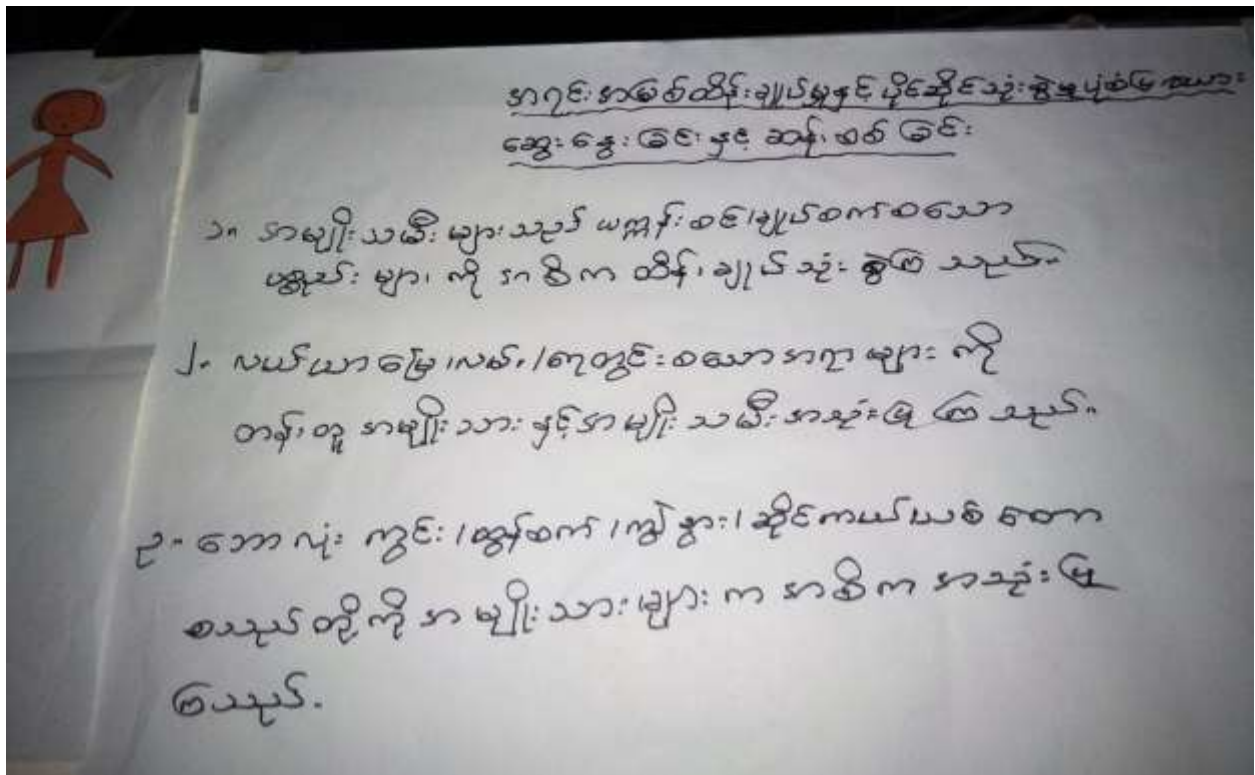 အရင်းအမြစ်ထိန်းချုပ်မှုနှင့် ပိုင်ဆိုင်သုံးစွဲမှုပုံစံပြဇယား
ဆွေးနွေးခြင်းနှင့် ဆန်းစစ်ခြင်း
၁။ အမျိုးသမီးများသည် ယက္ကန်းစင်/ချုပ်စက်စသော
ပစ္စည်းများ ကို အဓိက ထိန်းချုပ်သုံးစွဲကြသည်။
၂။ လယ်ယာမြေ/လမ်း/ရေတွင်းစသောအရာများ ကို
တန်းတူ အမျိုးသား နှင့်အမျိုးသမီးအသုံးပြုကြသည်။
၃။ ဘောလုံး ကွင်း/ထွန်စက်/ကျွဲနွား/ဆိုင်ကယ်ယစ် တော
စသည်တို့ကို အမျိုးသားများ က အဓိက အသုံးပြု
ကြသည်။